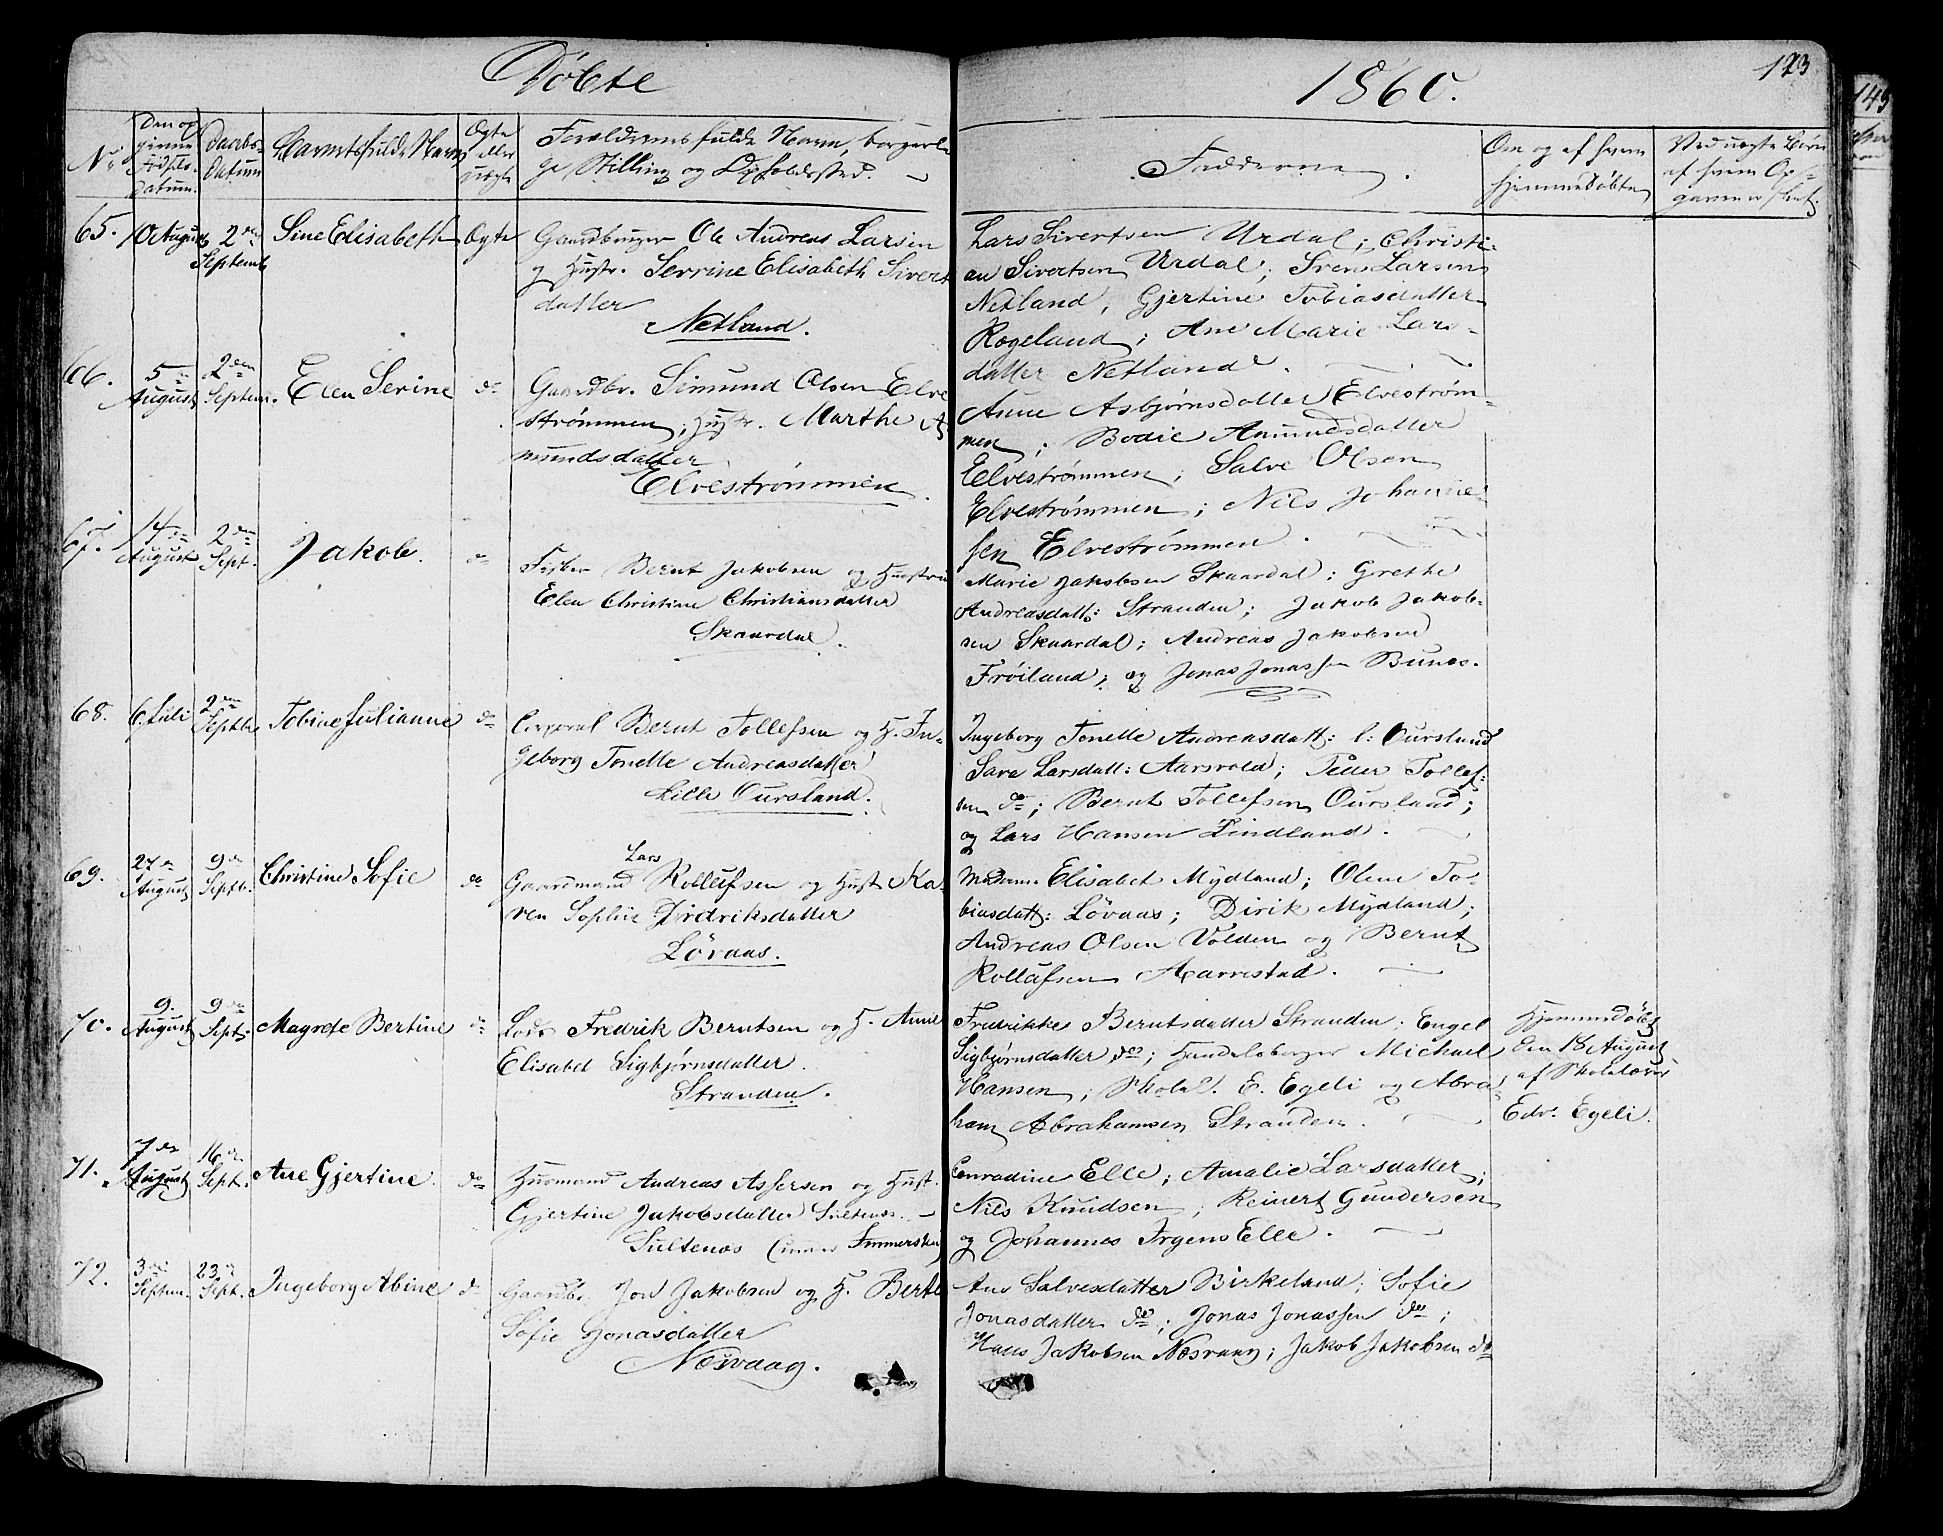 Döbte
1860.
123
143
No
Den op
givne
Födsels
datum.
Daabs-
Datum
Barnets fulde Navn
Ægte
eller
uægte
Forældrenes fulde Navn, borgerli
ge Stilling og Opholdssted.
Fadderne.
Om og af hvem
hjemmedöbte
Ved uægte Börn
af hvem Op-
gaven er sket.
65.
10 August
2den
Septemb
Sine Elisabeth
Ægte
Gaardbruger Ole Andreas Larsen
og Hustr. Serrine Elisabeth Sivert
datter
Netland.
Lars Sivertsen Urdal; Christi-
an Sivertsen Urdal; Svend Larsen
Netland, Gjertine Tobiasdatter
Rogeland; Ane Marie Lars-
datter Netland.
66.
5te
August
2den
Septem.
Elen Serine
do
Gaardbr. Simund Olsen Elve
strømmen, Hustr. Marthe As
mundsdatter
Elvestrømmen.
Anne Asbjørnsdatter Elvestrøm-
men; Bodie Anmundsdatter
Elvestrømmen; Salve Olsen
Elvestrømmen; Nils Johanne-
sen Elvestrømmen.
67.
14de
August
2den
Sept.
Jakob.
do
Fisker Bernt Jakobsen og Hustru
Elen Christine Christiansdatter
Skaardal.
Marie Jakobsen Skaardal; Grethe
Andreasdatt: Stranden; Jakob Jakob-
sen Skaardal; Andreas Jakobsen
Frøiland; og Jonas Jonassen Bunes.
68.
6. Juli
2den
Septbr
Tobine Julianne
do
Corporal Bernt Tollefsen og H. In-
geborg Tonette Andreasdatter
Lille Oursland.
Ingeborg Tonette Andreasdatt: l: Oursland
Sara Larsdatt: Aarsvold; Peder Tollef-
sen do; Bernt Tollefsen Oursland;
og Lars Hansen Lindland.
69.
27de
August
9de
Septb.
Christine Sofie
do
Lars
Gaardmand Rollufsen og Hust. Ka-
ren Sophie Didriksdatter
Lövaas.
Madame Elisabet Mydland; Oline To-
biasdatt: Lövaas; Dirik Mydland;
Andreas Olsen Volden og Bernt
Rollufsen Aarrestad.
70.
9.
August
9de
Sept.
Magrete Bertine
do
Lods Fredrik Berntsen og H. Anne
Elisabet Sigbjørnsdatter.
Stranden.
Fredrikke Berntsdatter Stranden; Engel
Sigbjørnsdatter do; Handelsborger Michael
Hansen; Skolel. E. Egeli og Abra-
ham Abrahamsen Stranden.
Hjemmedöbt
den 18 August
af Skolelærer
Edv. Egeli.
71.
7de
August
16de
Sept.
Ane Gjertine.
do
Husmand Andreas Assersen og Hust.
Gjertine Jakobsdatter Sultenæs.
Sultenæs
Conradine Elle; Amalie Larsdatter;
Nils Knudsen; Reinert Gundersen
og Johannes Irgens Elle.
72.
3die
Septem.
23de
Sept.
Ingeborg Abine
do
Gaardbr. Jon Jakobsen og H. Berte
Sofie Jonasdatter
Nesvaag.
Ane Salvesdatter Birkeland; Sofie
Jonasdatter do; Jonas Jonassen do;
Hans Jakobsen Nesvaag; Jakob Jakobsen do